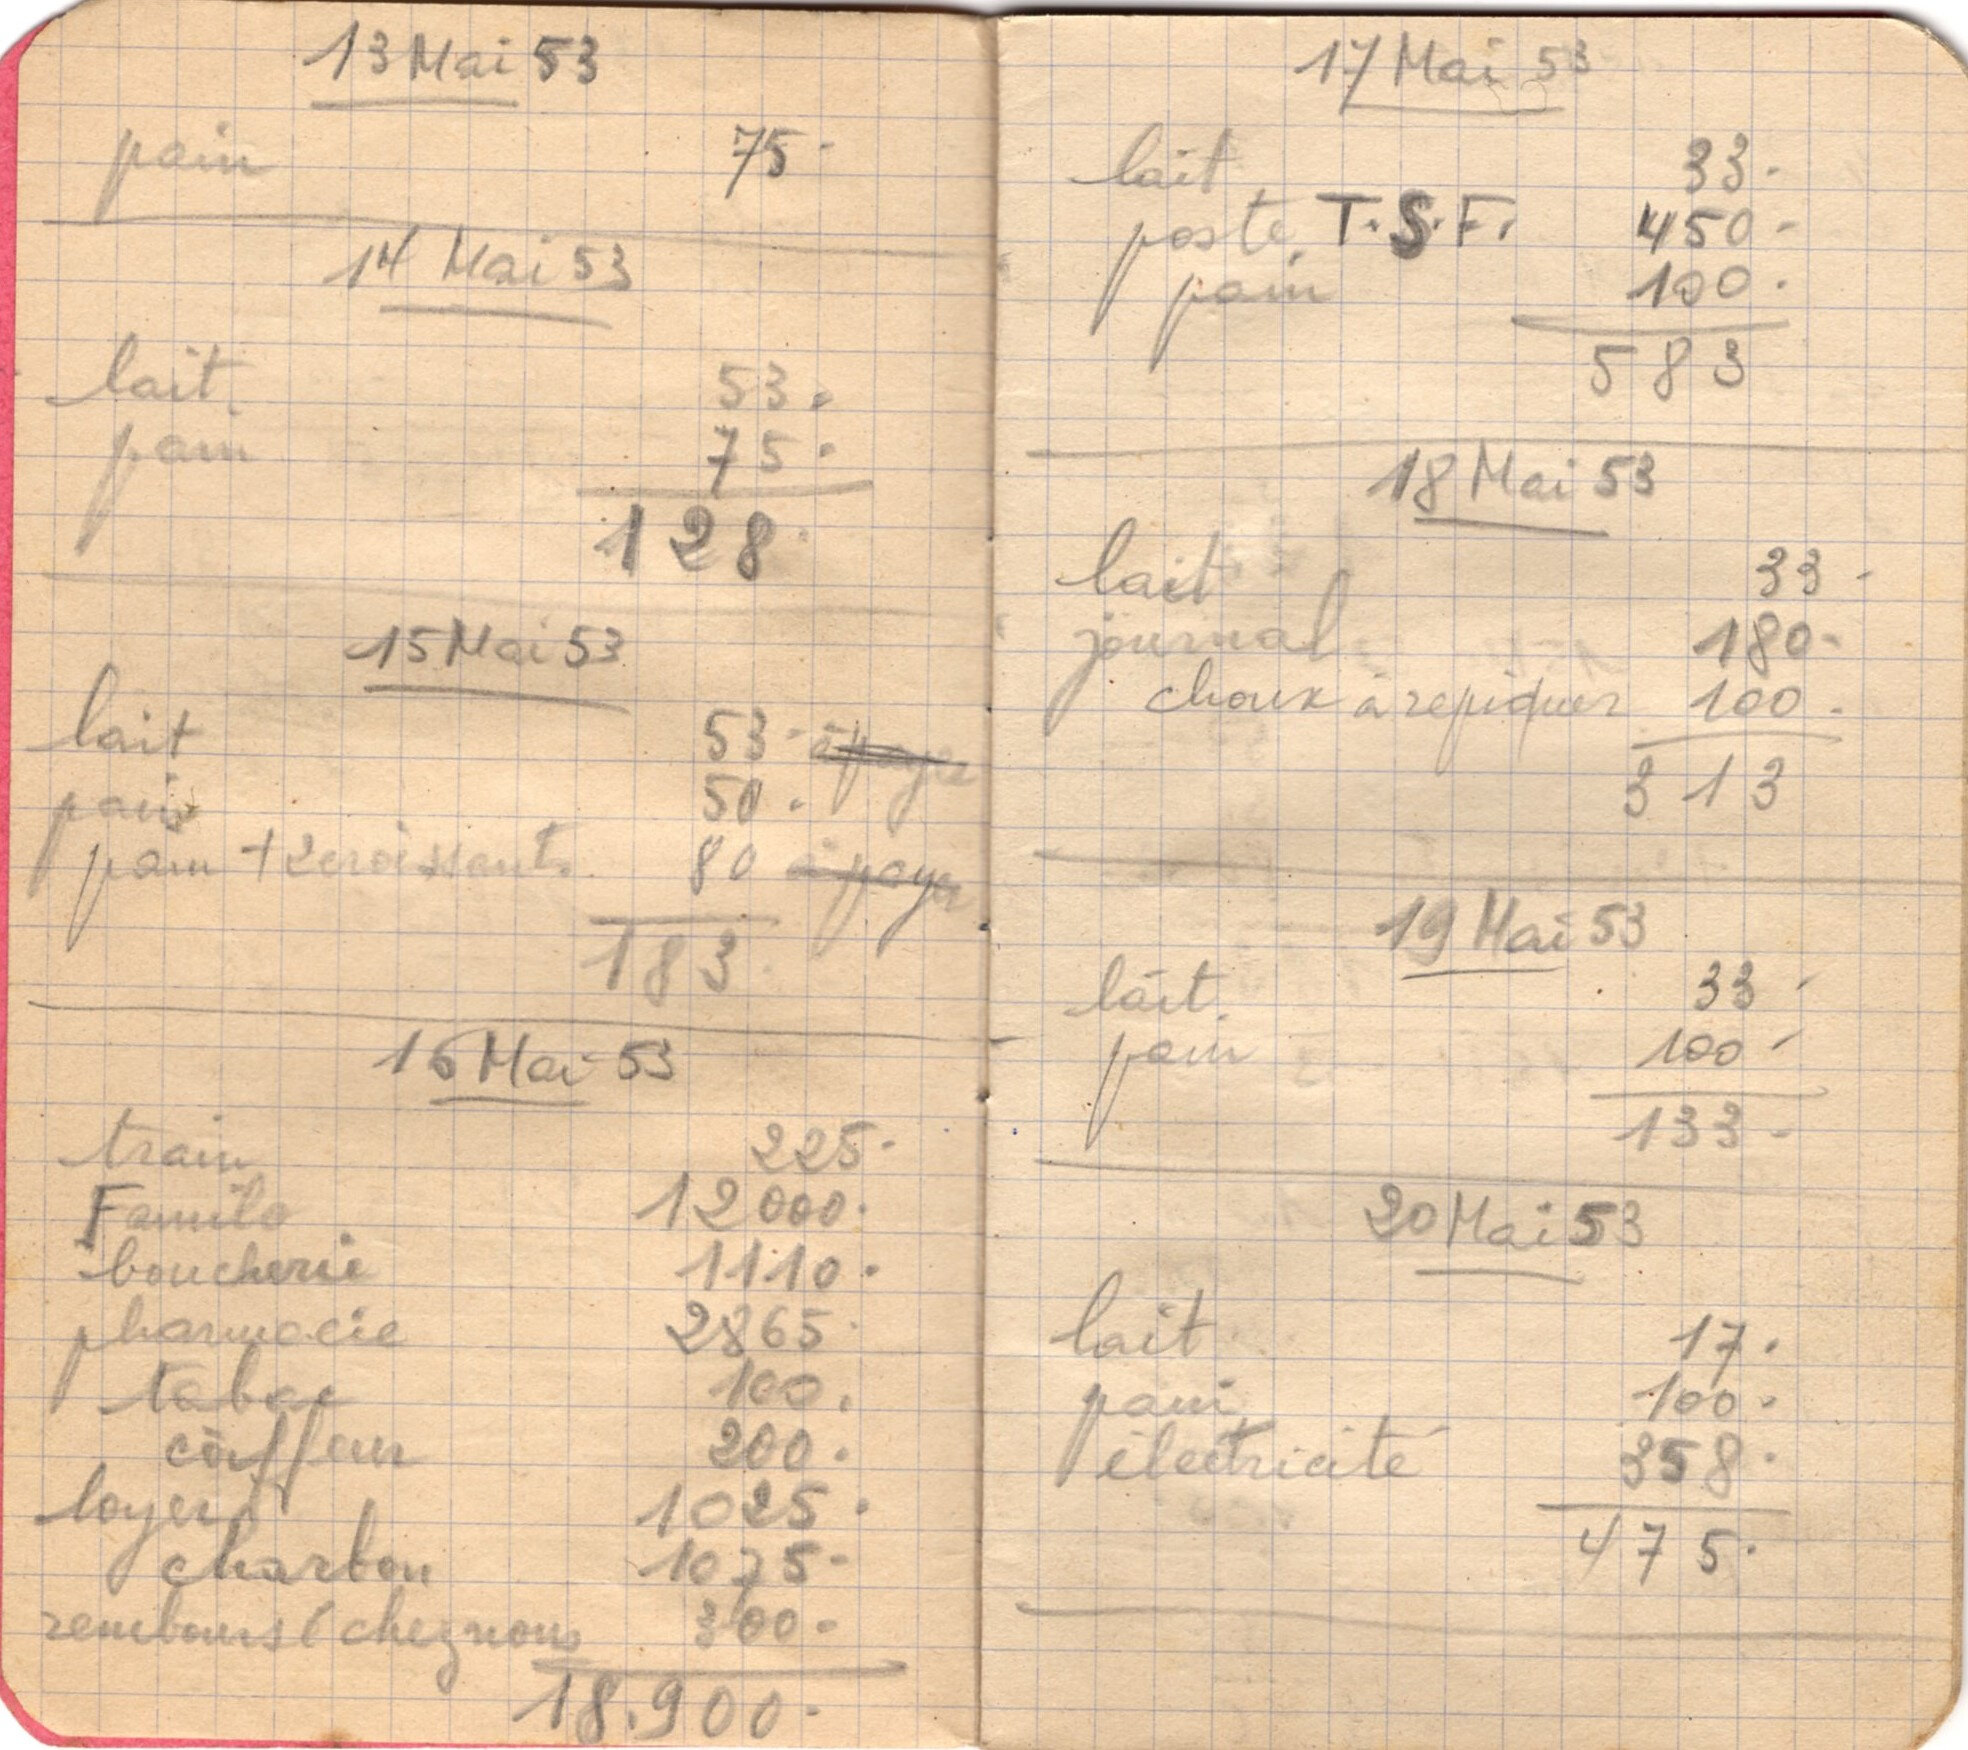 13 Mai 53
pain 75.
14 Mai 53
lait 53.
pain 75.
128.
15 Mai 53
lait 53 - à payer
pain 50.
pain + 2 croissants 80 à payer
183
16 Mai 53
train 225.
Familo 12000.
boucherie 1110.
pharmacie 2865.
tabac 100.
coiffeur 200.
loyer 1025.
charbon 1075-
remboursé chez nous 300-
18.900.
17 Mai 53
lait 33.
poste T.S.F. 450-
pain 100.
583
18 Mai 53
lait 33-
journal 180-
choux à repiquer 100.
313
19 Mai 53
lait 33-
pain 100-
133-
20 Mai 53
lait 17.
pain 100.
électricité 358.
475.